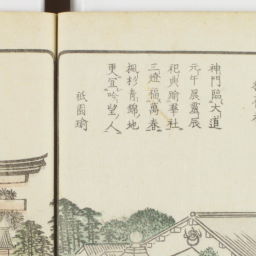 神門臨大道
元午展霽辰
祀典踰羣社
三燈福萬春
楓杉青錦地
更宜吟望人
祇園瑜